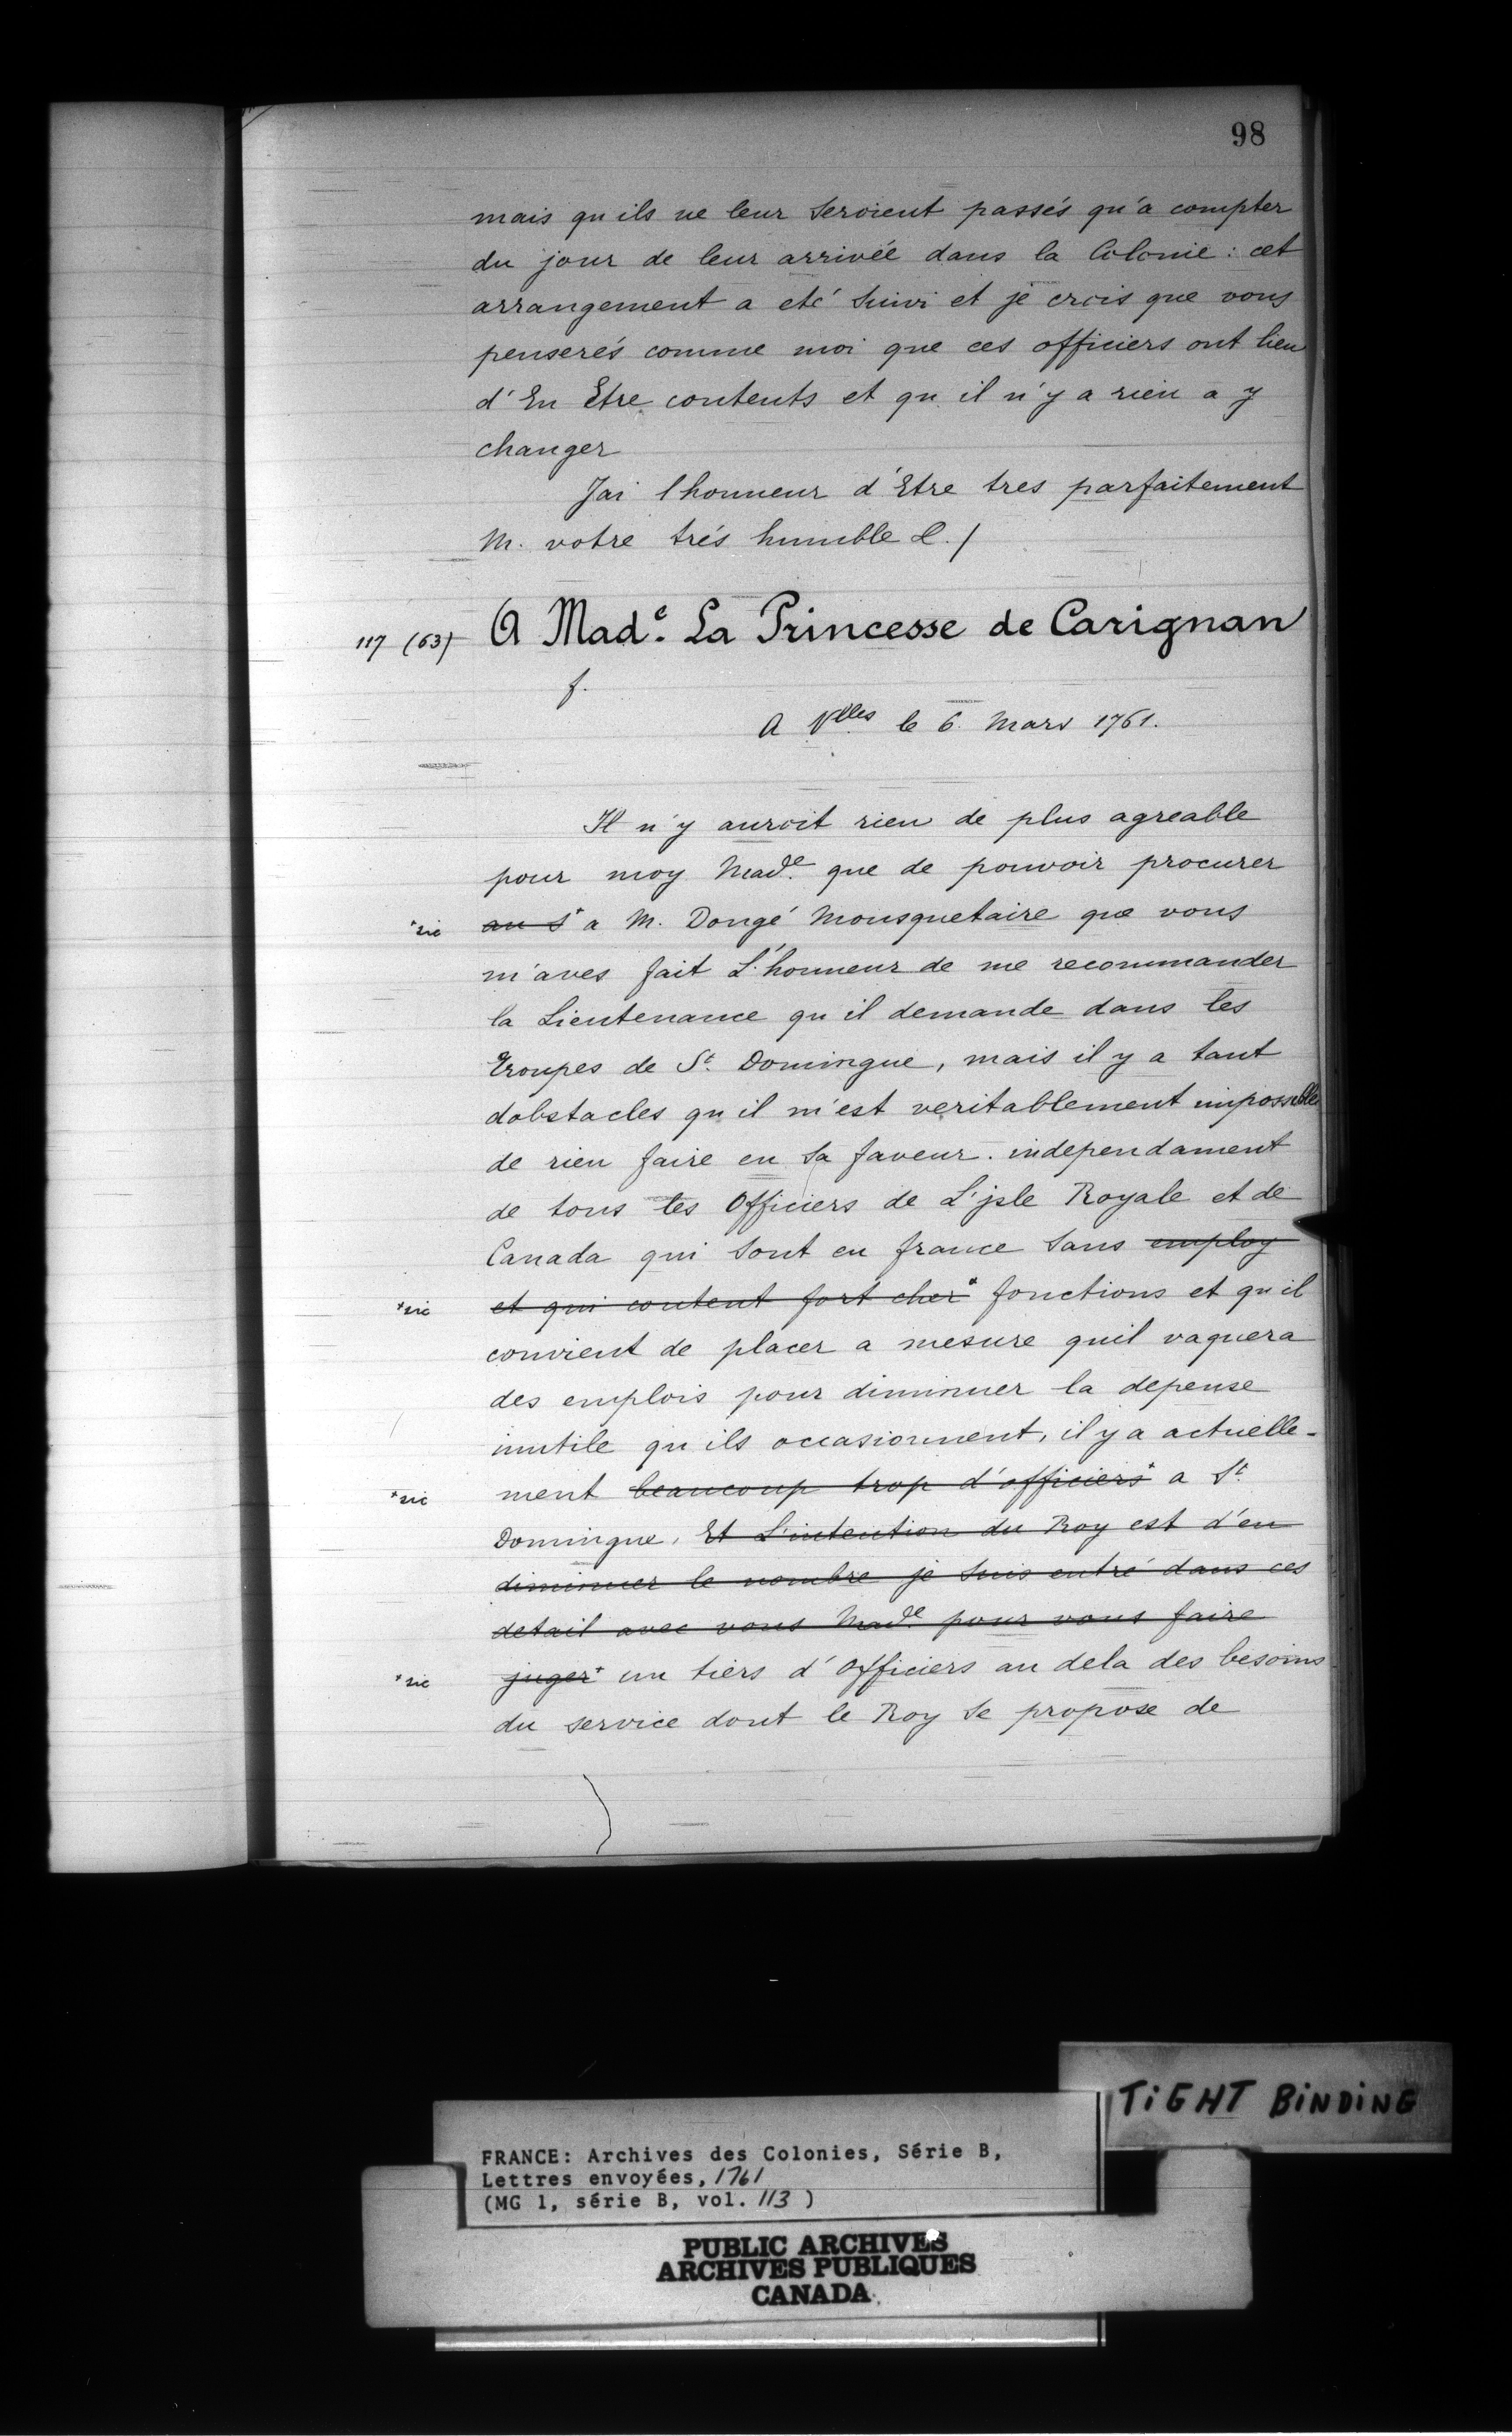 98
mais qu ils ne leur seroient passés qu'a compter
du jour de leur arrivée dans la Colonie : cet
arrangement a eté suivi et je crois que vous
penserés comme moi que ces officiers ont lieu
d'En Etre contents et qu il n'y a rien a y
changer
Jai l honneur d'Etre tres parfaitement
M. votre trés humble &./
117 (63) A Made. La Princesse de Carignan
f.
A Vlles le 6. Mars 1761.
Il n'y auroit rien de plus agreable
pour moy Made. que de pouvoir procurer
*sic au s* a M. Dongé Mousquetaire que vous
m'aves fait L'honneur de me recommander
la Lieutenance qu il demande dans les
Troupes de St. Domingue, mais il y a tant
dobstacles qu il m'est veritablement impossible
de rien faire en sa faveur. independament
de tous les Officiers de L'jsle Royale et de
Canada qui sont en france sans employ
*sic et qui coutent fort cher* fonctions et qu il
convient de placer a mesure quil vaquera
des emplois pour diminuer la depense
inutile qu ils occasionnent, il y a actuelle-
*sic ment beaucoup trop d'officiers* a St.
Domingue, Et L'intention du Roy est d'en
diminuer le nombre je suis entré dans ces
detail avec vous Made. pour vous faire
*sic juger* un tiers d'Officiers au dela des besoins
du service dont le Roy se propose de
TIGHT BINDING
FRANCE: Archives des Colonies, Série B,
Lettres envoyées, 1761
(MG 1, série B, vol. 113 )
PUBLIC ARCHIVES
ARCHIVES PUBLIQUES
CANADA